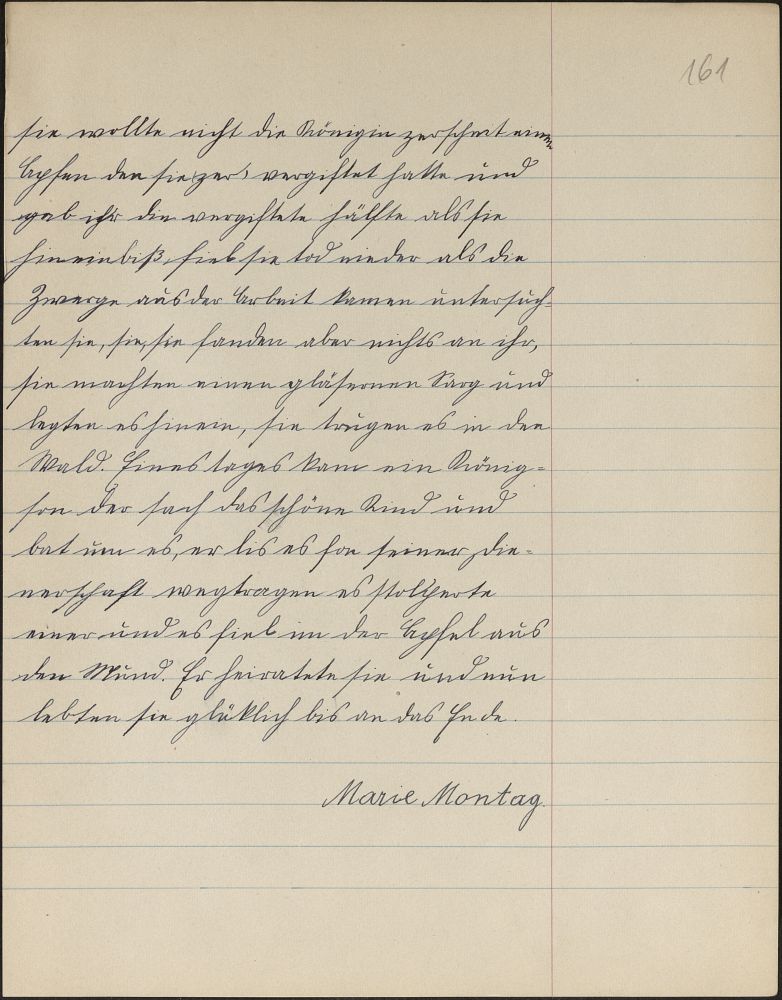 161
sie wollte nicht die Königin zerschnit einen
Apfen den sie zer vergiftet hatte und
gab ihr die vergiftete hälfte als sie
hineinbiß, fiel sie tod nieder als die
Zwerge aus der Arbeit kamen untersuch-
ten sie, sie, sie fanden aber nichts an ihr,
sie machten einen gläsernen Sarg und
legten es hinein, sie trugen es in den
Wald. Eines tages kam ein König-
son der sach das schöne Kind und
bat um es, er lis es fon seiner Die-
nerschaft wegtragen es stolperte
einer und es fiel im der Apfel aus
den Mund. Er heiratete sie und nun
lebten sie glüklich bis an das Ende.
Marie Montag.